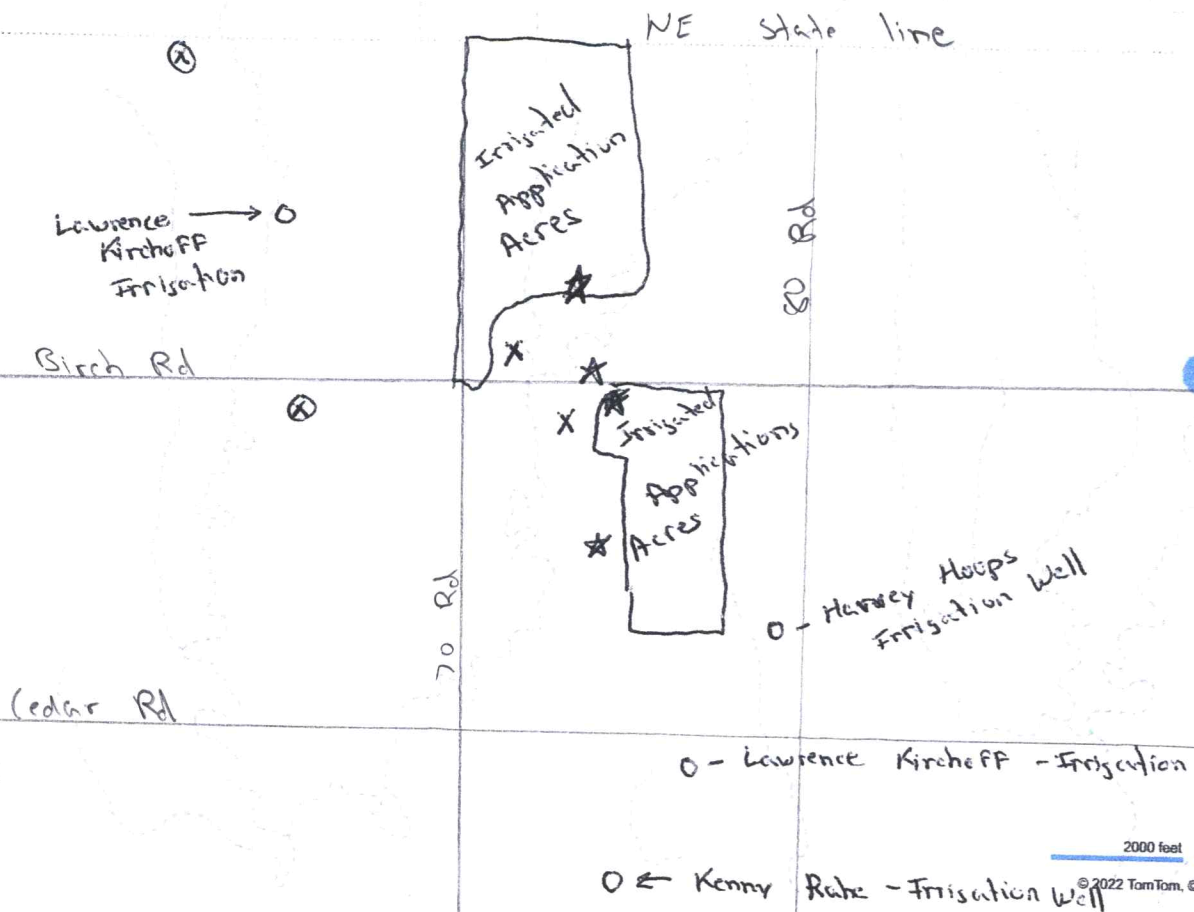 NE State line
Irrigated
Application
Acres
Lawrence
Kirchoff
Irrigation
80 Rd
Birch Rd
Irrigated
Applications
Acres
70 Rd
Harvey Hoops
Irrigation Well
Cedar Rd
Lawrence Kirchoff - Irrigation
2000 feet
Kenny Rahe - Irrigation Well
©2022 TomTom, ©